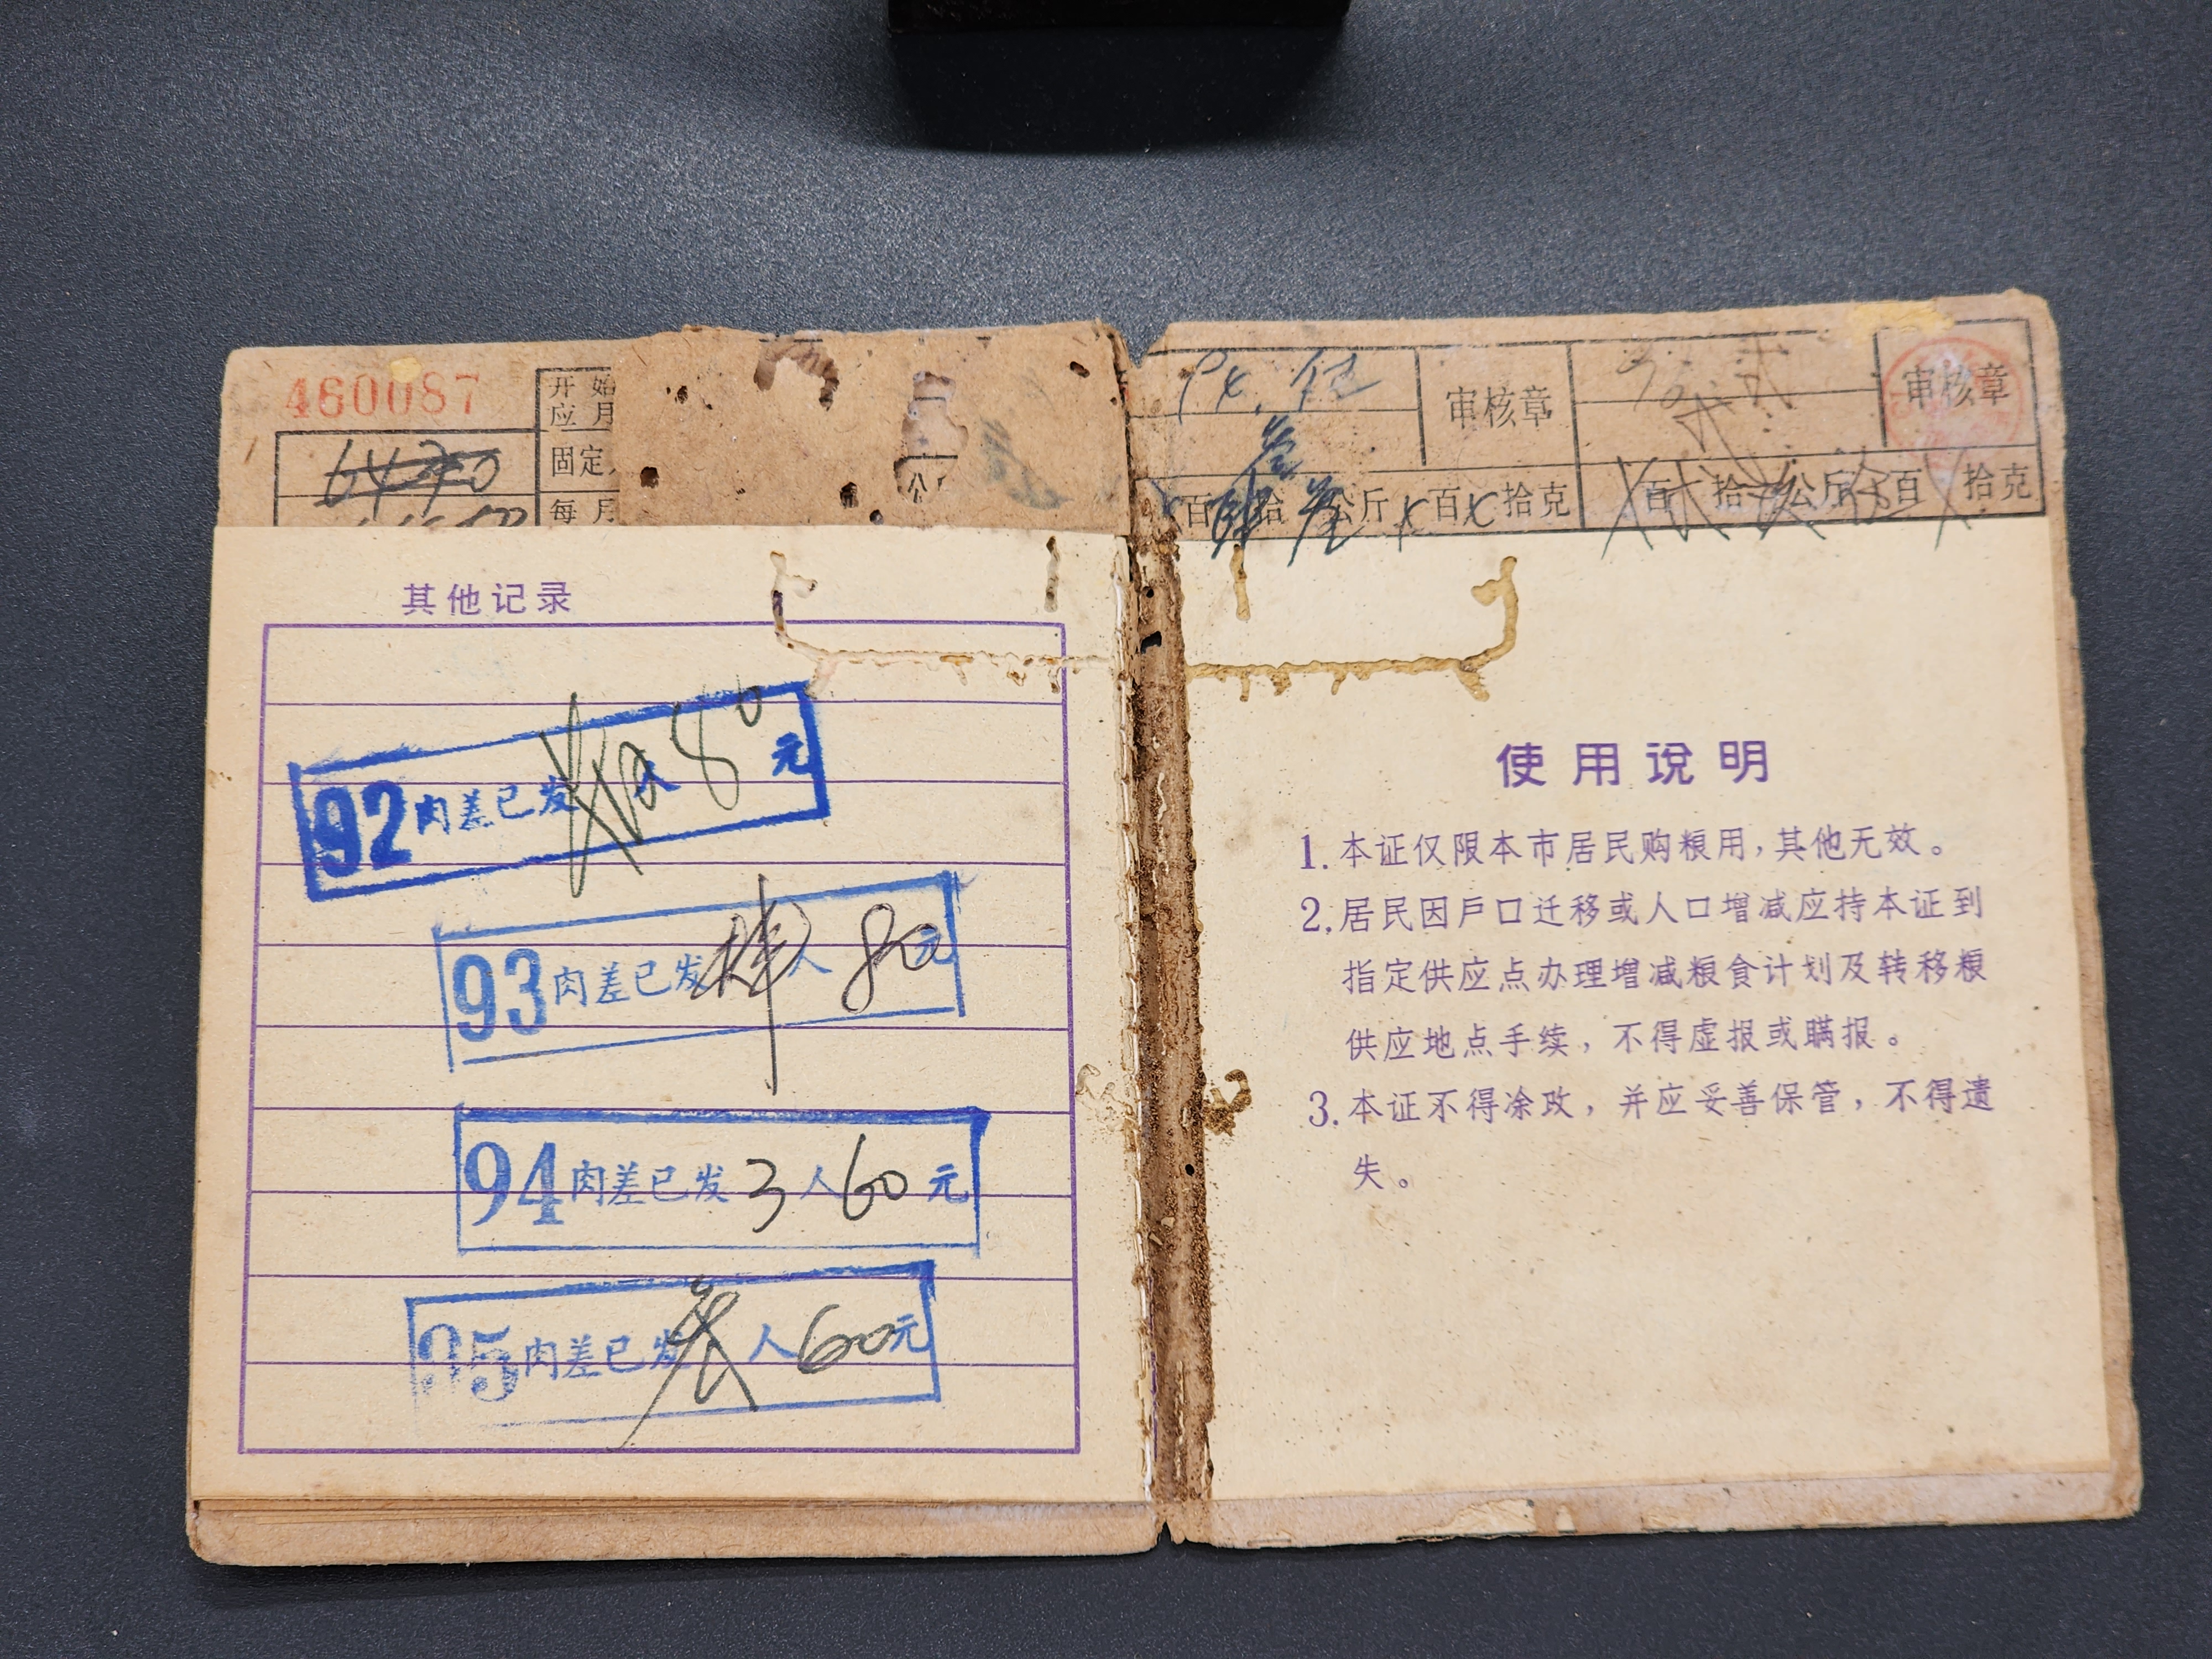 460087
开始
应月
固定
每月
6470
公斤
审核章
审核章
百拾公斤百拾克
百拾公斤百拾克
其他记录
92肉差已发 人80元
93肉差已发 人80元
94肉差已发3人60元
95肉差已发 人60元
使用说明
1.本证仅限本市居民购粮用,其他无效。
2.居民因戶口迁移或人口增减应持本证到
指定供应点办理增减粮食计划及转移粮
供应地点手续,不得虚报或瞒报。
3.本证不得涂改,并应妥善保管,不得遗
失。